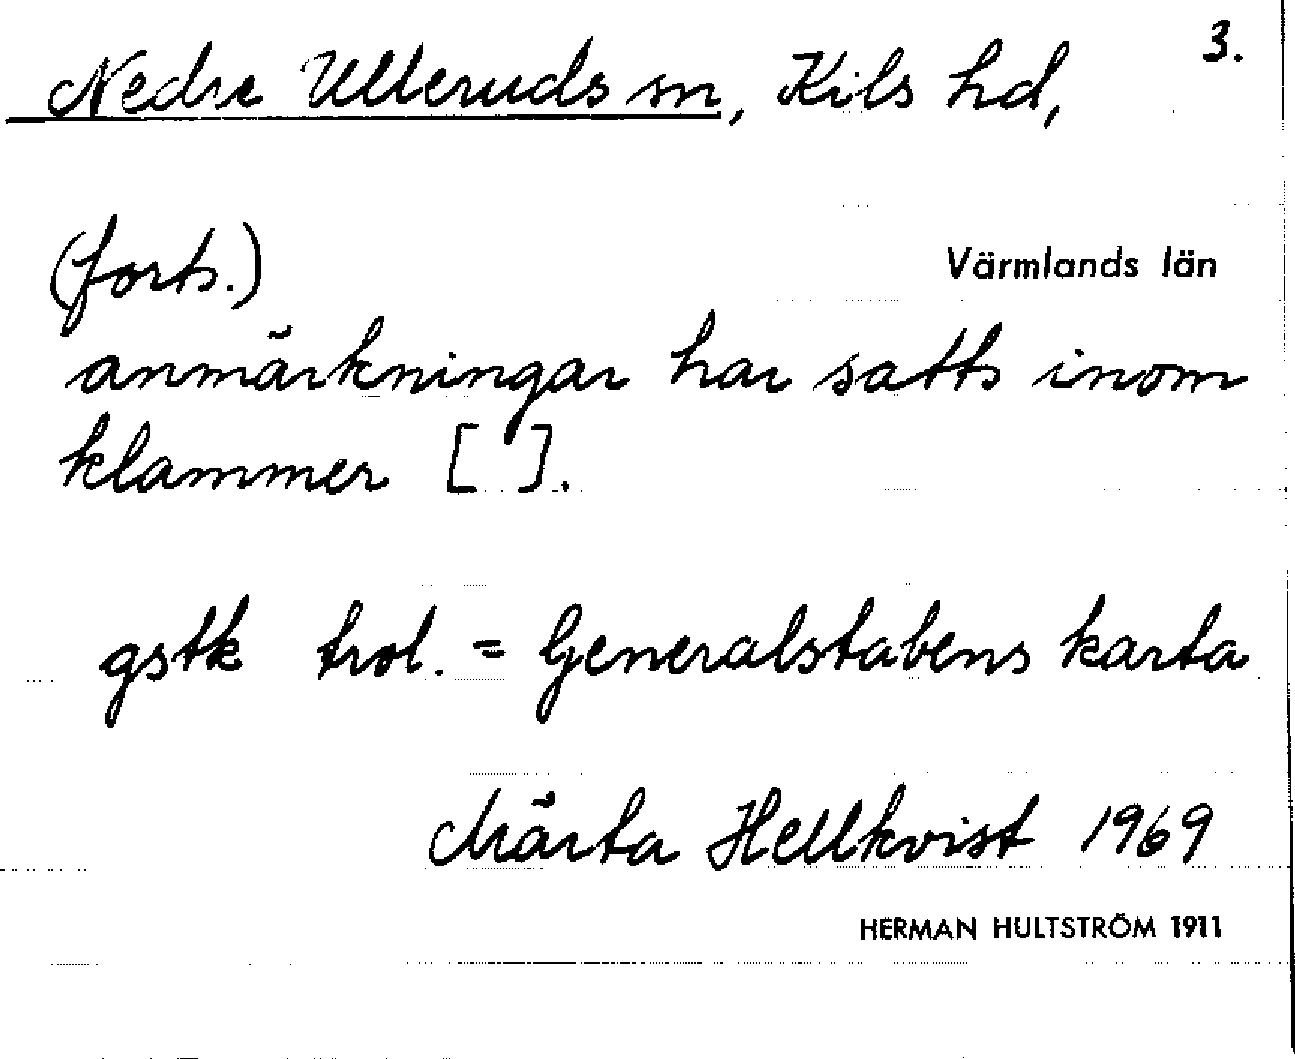 3.
Nedre Ulleruds sn, Kils hd,
(forts.)
Värmlands län
anmärkningar har satts inom
klammer [ ].
gstk trol. = Generalstabens karta
Märta Hellkvist 1969
HERMAN HULTSTRÖM 1911